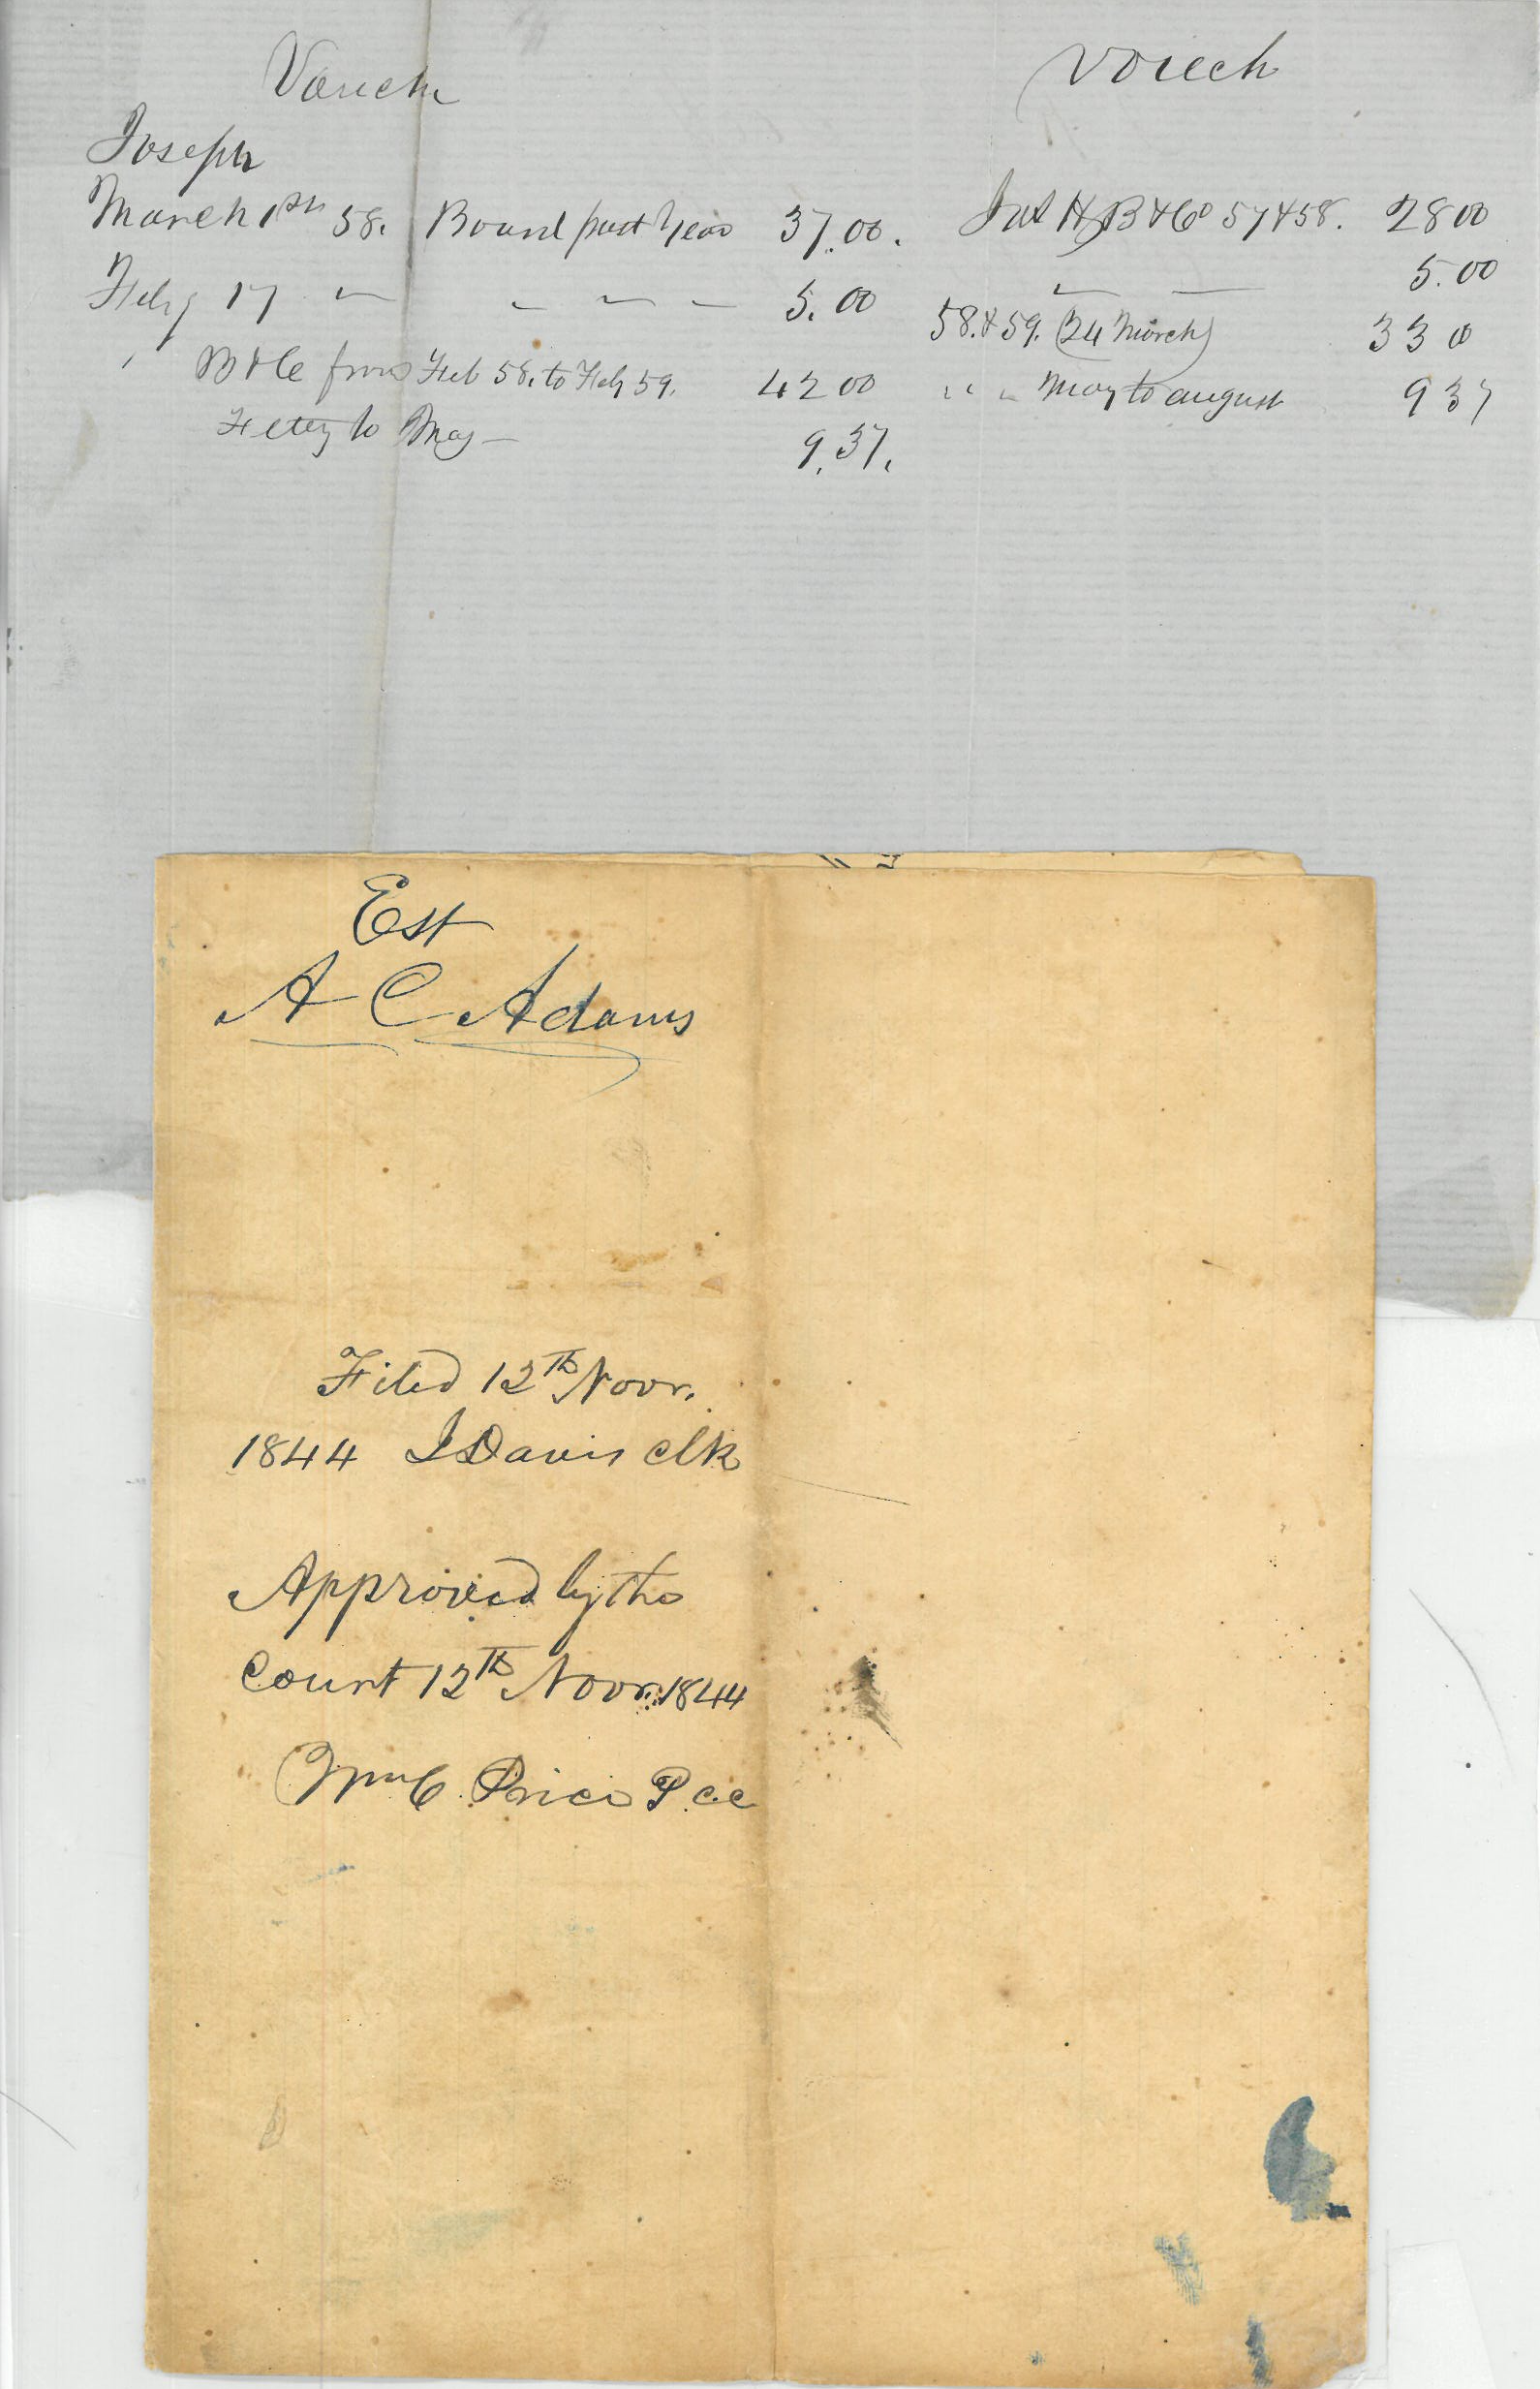 Vouch
Joseph
March 1st 58. Board past Year 37.00.
Feby 17 — — — — 5.00
" B & C from Feb 58. to Feby 59. 42 00
to May — 9.37.
Vouch
B & Co 57 & 58. 28 00
— — 5.00
58. & 59. (24 March) 33 0
" " " May to august 9 37
Est
A C Adams
Filed 12th Novr.
1844 J Davis clk
Approved by the
Court 12th Novr. 1844
Wm C Price P c c